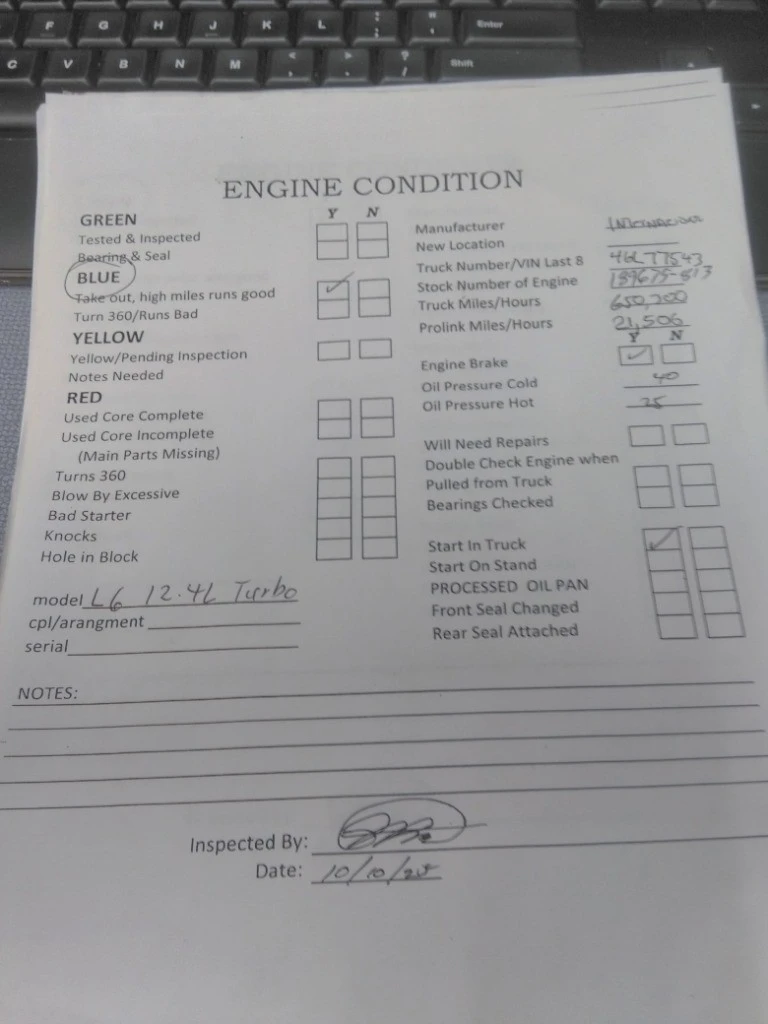 F G H J K L : ; " ' Enter
C V B N M < , > . ? / Shift
ENGINE CONDITION
Y N
GREEN
Tested & Inspected
Bearing & Seal
BLUE
Take out, high miles runs good
Turn 360/Runs Bad
YELLOW
Yellow/Pending Inspection
Notes Needed
RED
Used Core Complete
Used Core Incomplete
(Main Parts Missing)
Turns 360
Blow By Excessive
Bad Starter
Knocks
Hole in Block
model L6 12.4L Turbo
cpl/arangment
serial
Manufacturer
New Location
Truck Number/VIN Last 8
Stock Number of Engine
Truck Miles/Hours 650,200
Prolink Miles/Hours 21,506
Y N
Engine Brake
Oil Pressure Cold 40
Oil Pressure Hot
Will Need Repairs
Double Check Engine when
Pulled from Truck
Bearings Checked
Start In Truck
Start On Stand
PROCESSED OIL PAN
Front Seal Changed
Rear Seal Attached
NOTES:
Inspected By:
Date: 10/10/